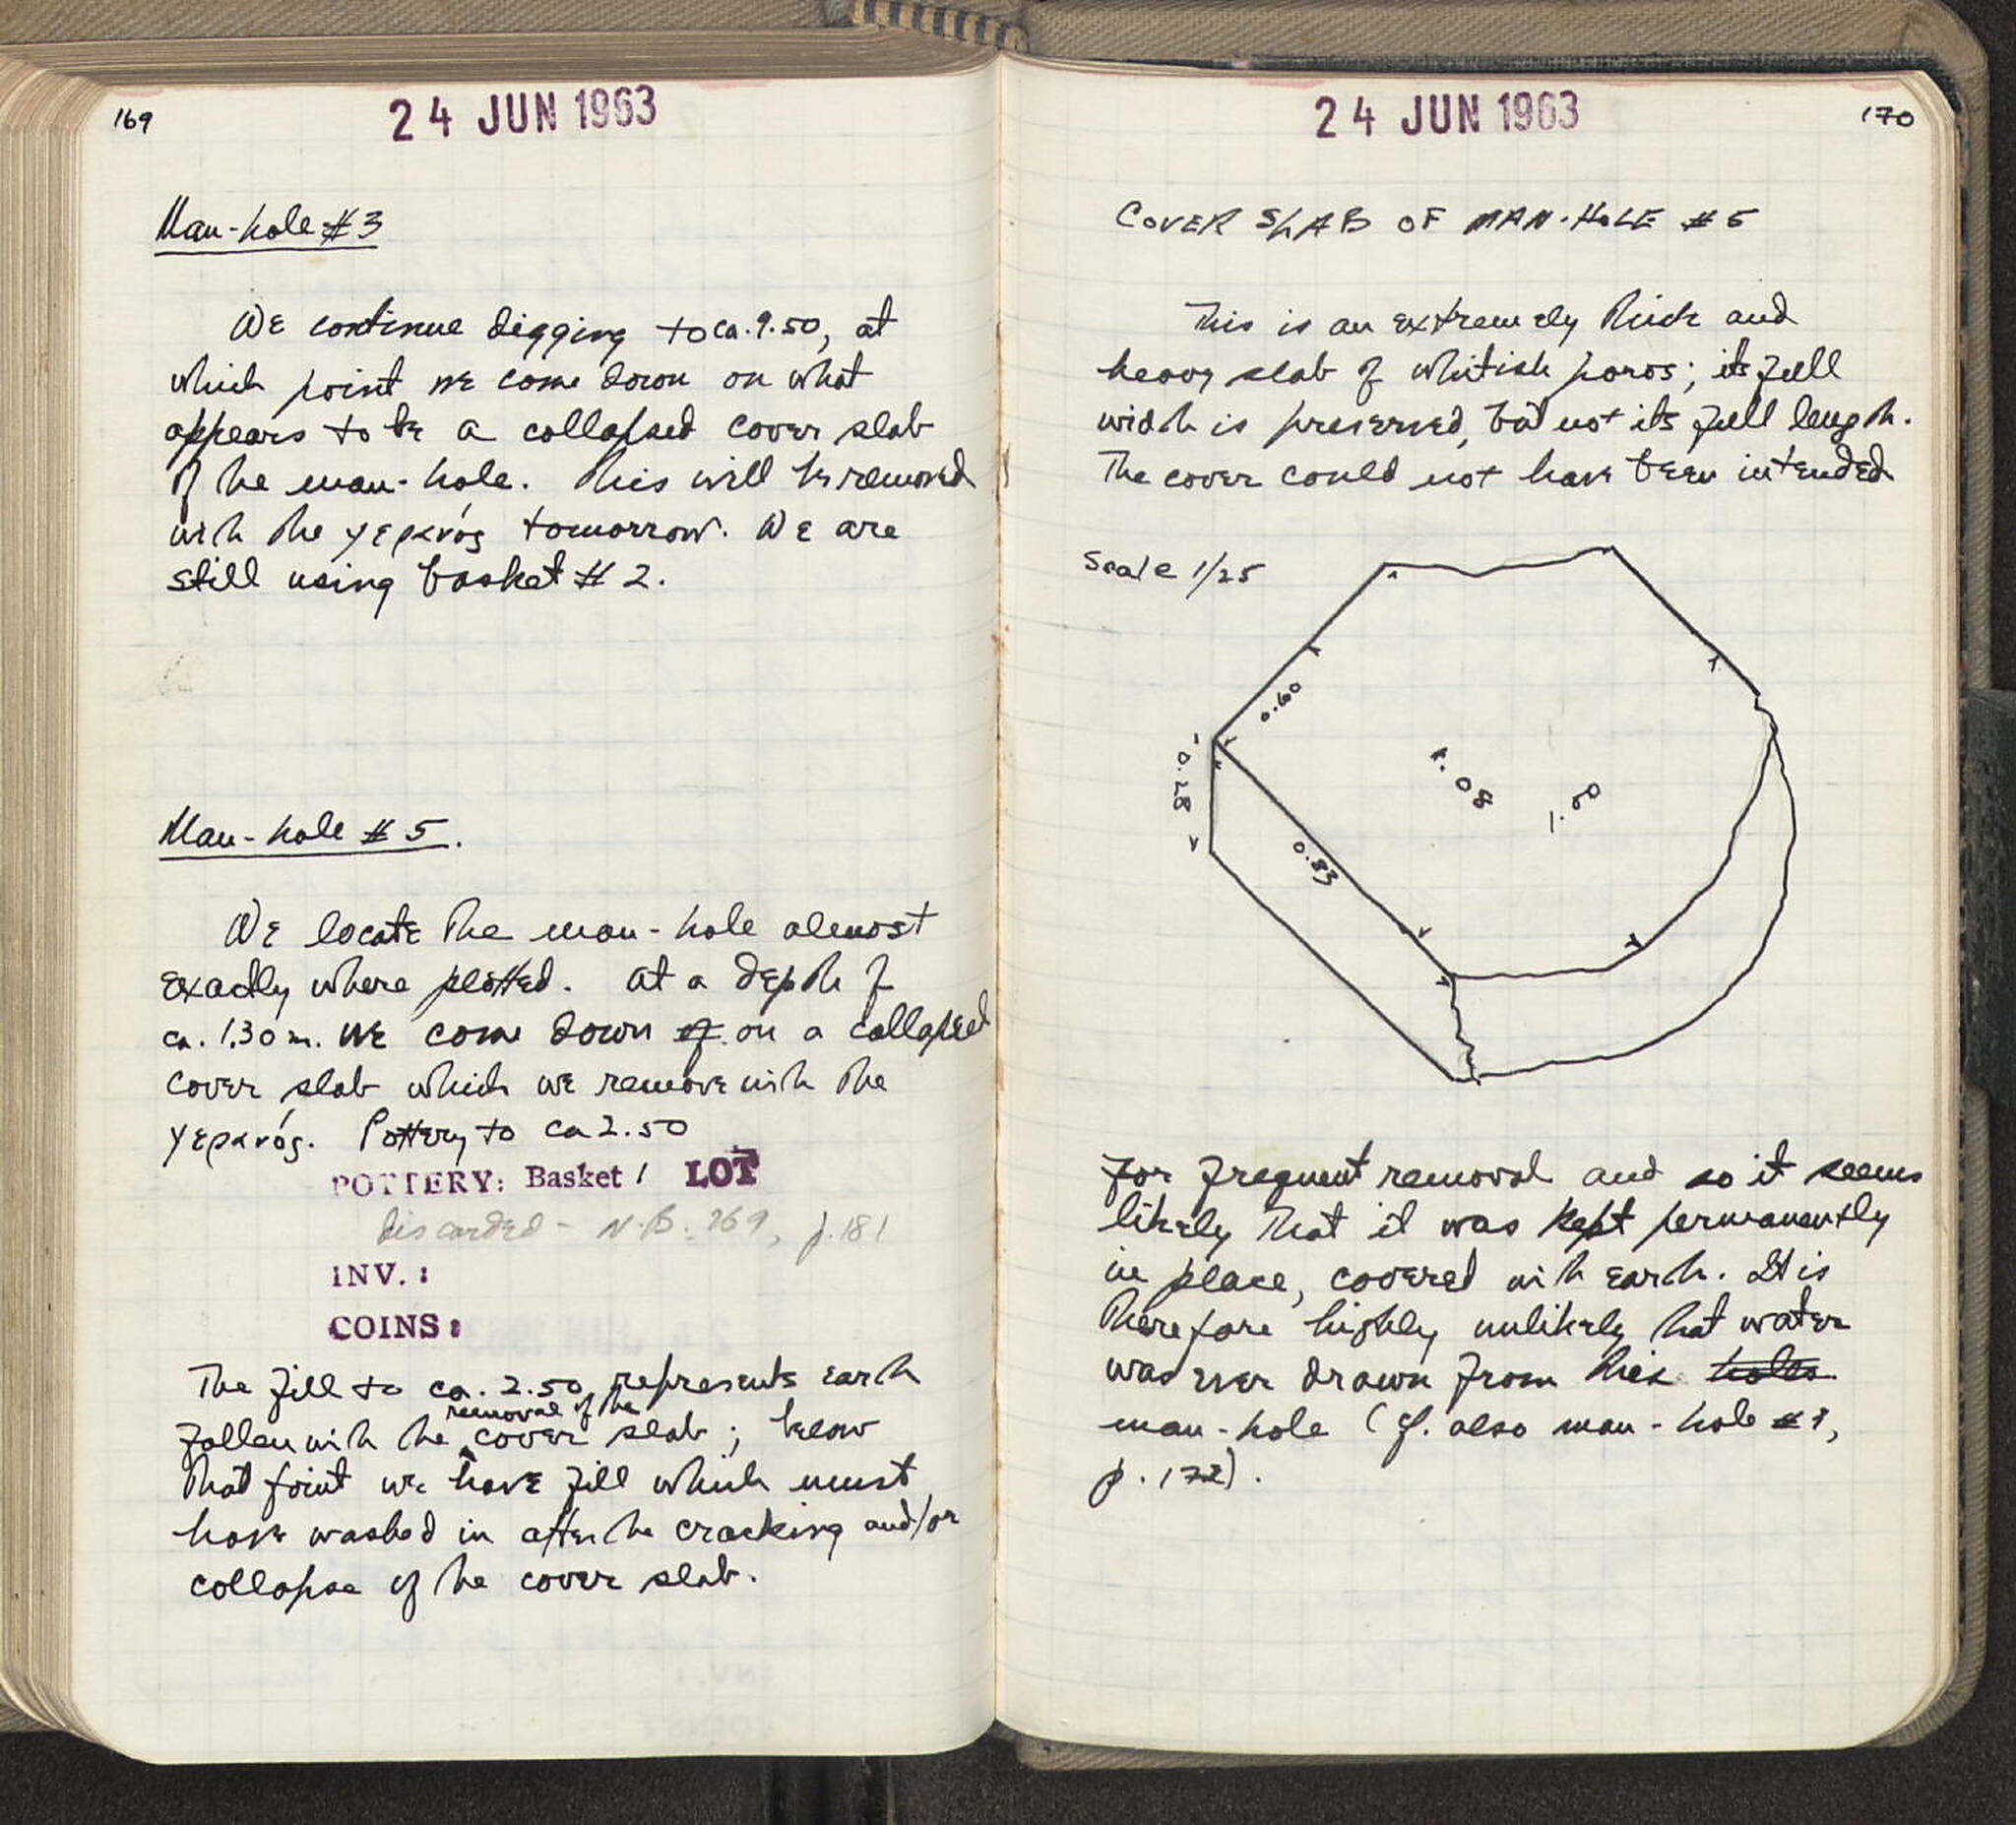 169
24 JUN 1963
Man-hole #3
We continue digging to ca. 9.50, at
which point we come down on what
appears to be a collapsed cover slab
of the man-hole. This will be removed
with the γερανός tomorrow. We are
still using basket # 2.
Man-hole # 5.
We locate the man-hole almost
exactly where plotted. At a depth of
ca. 1.30 m. we come down of on a collapsed
cover slab which we remove with the
γερανός. Pottery to ca 2.50
POTTERY: Basket 1 LOT
discarded - N.B. 269, p. 181
INV. :
COINS :
The fill to ca. 2.50 represents earth
removal of the
fallen with the cover slab; below
that point we have fill which must
have washed in after the cracking and/or
collapse of the cover slab.
24 JUN 1963
170
COVER SLAB OF MAN-HOLE #5
This is an extremely thick and
heavy slab of whitish poros; its full
width is preserved, but not its full length.
The cover could not have been intended
Scale 1/25
0.60
0.28
1.08
1.60
0.83
for frequent removal and so it seems
likely that it was kept permanently
in place, covered with earth. It is
therefore highly unlikely that water
was ever drawn from this holes
man-hole (cf. also man-hole #
p. 172).